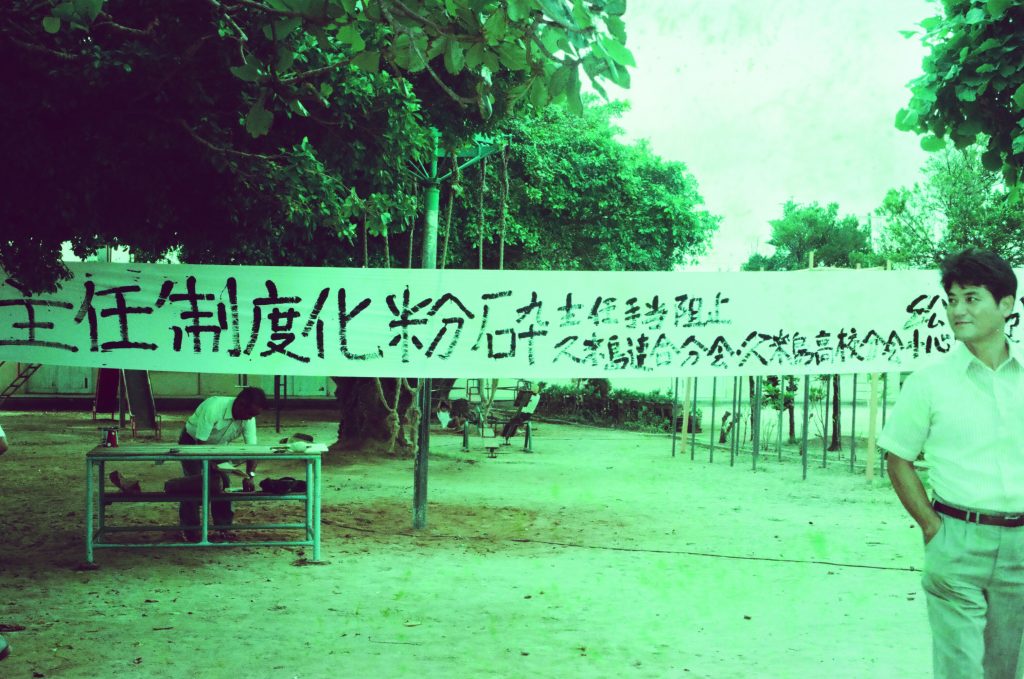 主任制度化粉砕
主任手当阻止
久米島連合分会・久米島高校分会
総